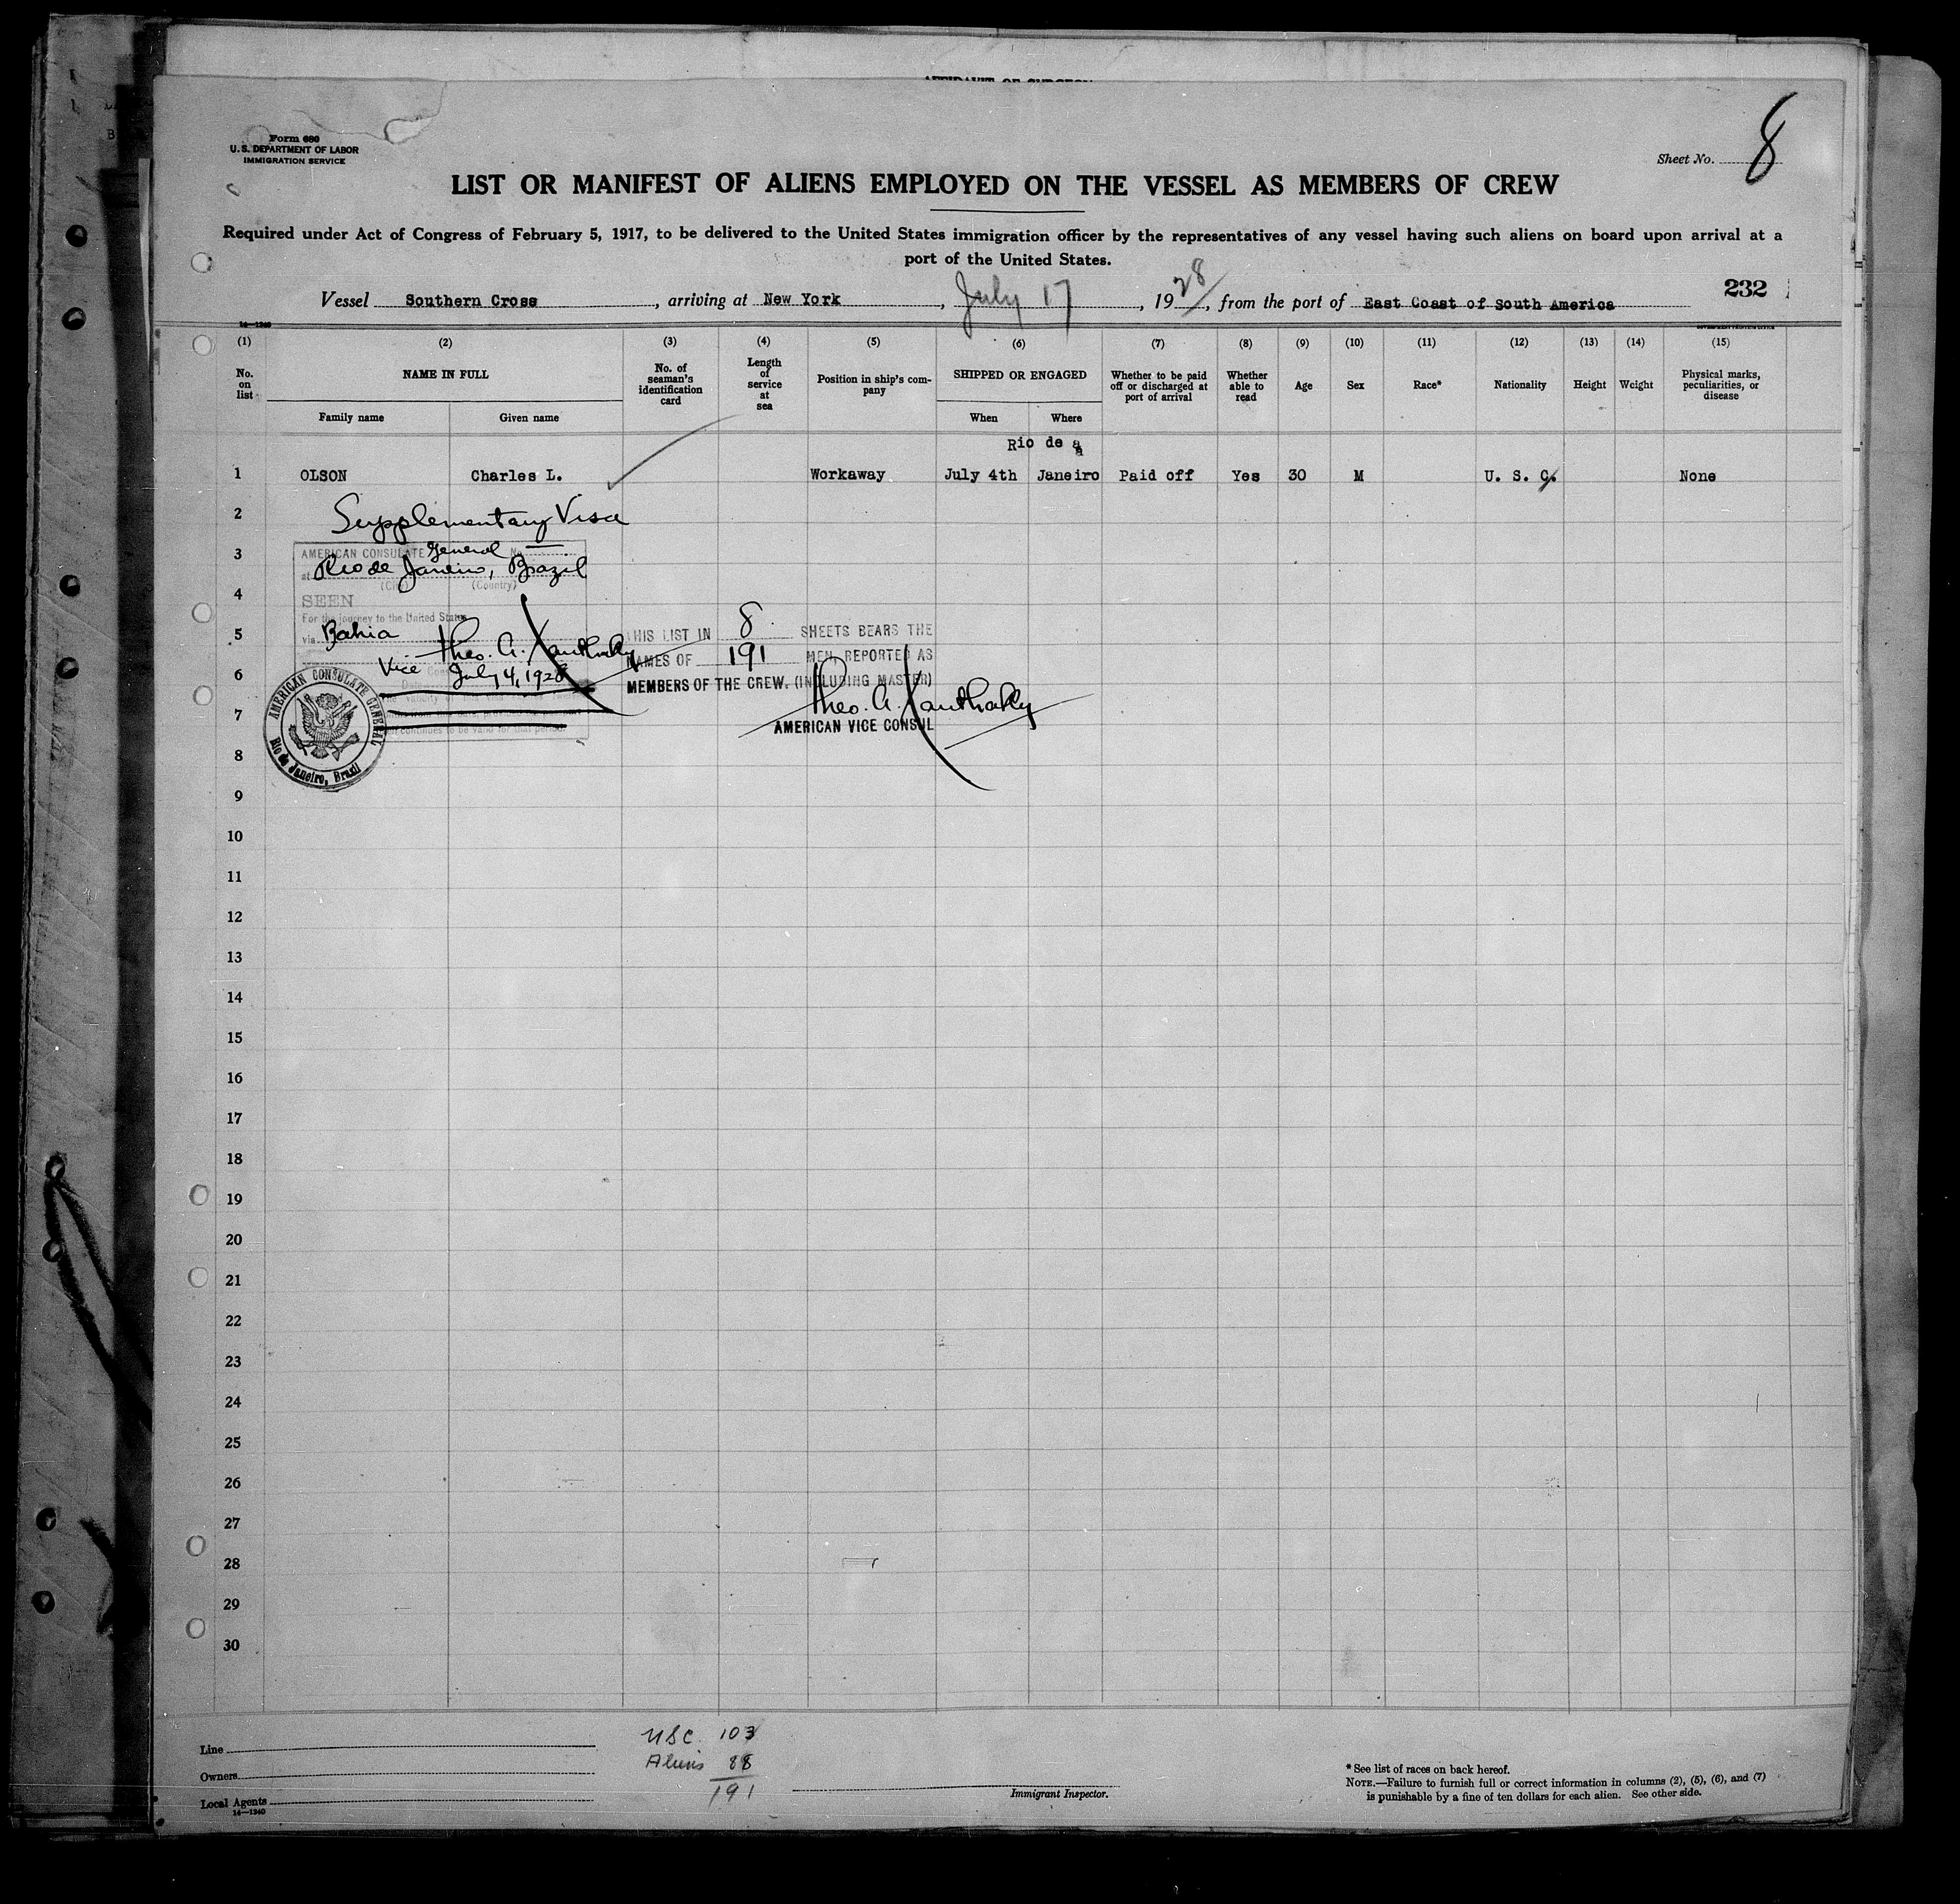 AFFIDAVIT OF SURGEON
Form 680
U. S. DEPARTMENT OF LABOR
IMMIGRATION SERVICE
Sheet No. 8
LIST OR MANIFEST OF ALIENS EMPLOYED ON THE VESSEL AS MEMBERS OF CREW
Required under Act of Congress of February 5, 1917, to be delivered to the United States immigration officer by the representatives of any vessel having such aliens on board upon arrival at a
port of the United States.
232
Vessel Southern Cross, arriving at New York, July 17, 1928, from the port of East Coast of South America
14—1240
(1) (2) (3) (4) (5) (6) (7) (8) (9) (10) (11) (12) (13) (14) (15)
No. on list
NAME IN FULL
Family name
Given name
No. of seaman's identification card
Length of service at sea
Position in ship's company
SHIPPED OR ENGAGED
When
Where
Whether to be paid off or discharged at port of arrival
Whether able to read
Age
Sex
Race*
Nationality
Height
Weight
Physical marks, peculiarities, or disease
Rio de
1 OLSON Charles L. Workaway July 4th Janeiro Paid off Yes 30 M U. S. C. None
2
Supplementary Visa
3
AMERICAN CONSULATE General No.
at Rio de Janeiro, Brazil
(City) (Country)
4
SEEN
For the journey to the United States
5
via Bahia
Theo. A. Xanthaky
Vice
July 4, 1928
6
7
continues to be valid for that period.
AMERICAN CONSULATE GENERAL
Rio de Janeiro, Brazil
THIS LIST IN 8 SHEETS BEARS THE
NAMES OF 191 MEN, REPORTED AS
MEMBERS OF THE CREW. (INCLUDING MASTER)
Theo. A. Xanthaky
AMERICAN VICE CONSUL
8
9
10
11
12
13
14
15
16
17
18
19
20
21
22
23
24
25
26
27
28
29
30
USC. 103
Aliens 88
191
Line
Owners
Local Agents
14—1240
Immigrant Inspector.
* See list of races on back hereof.
NOTE.—Failure to furnish full or correct information in columns (2), (5), (6), and (7)
is punishable by a fine of ten dollars for each alien. See other side.